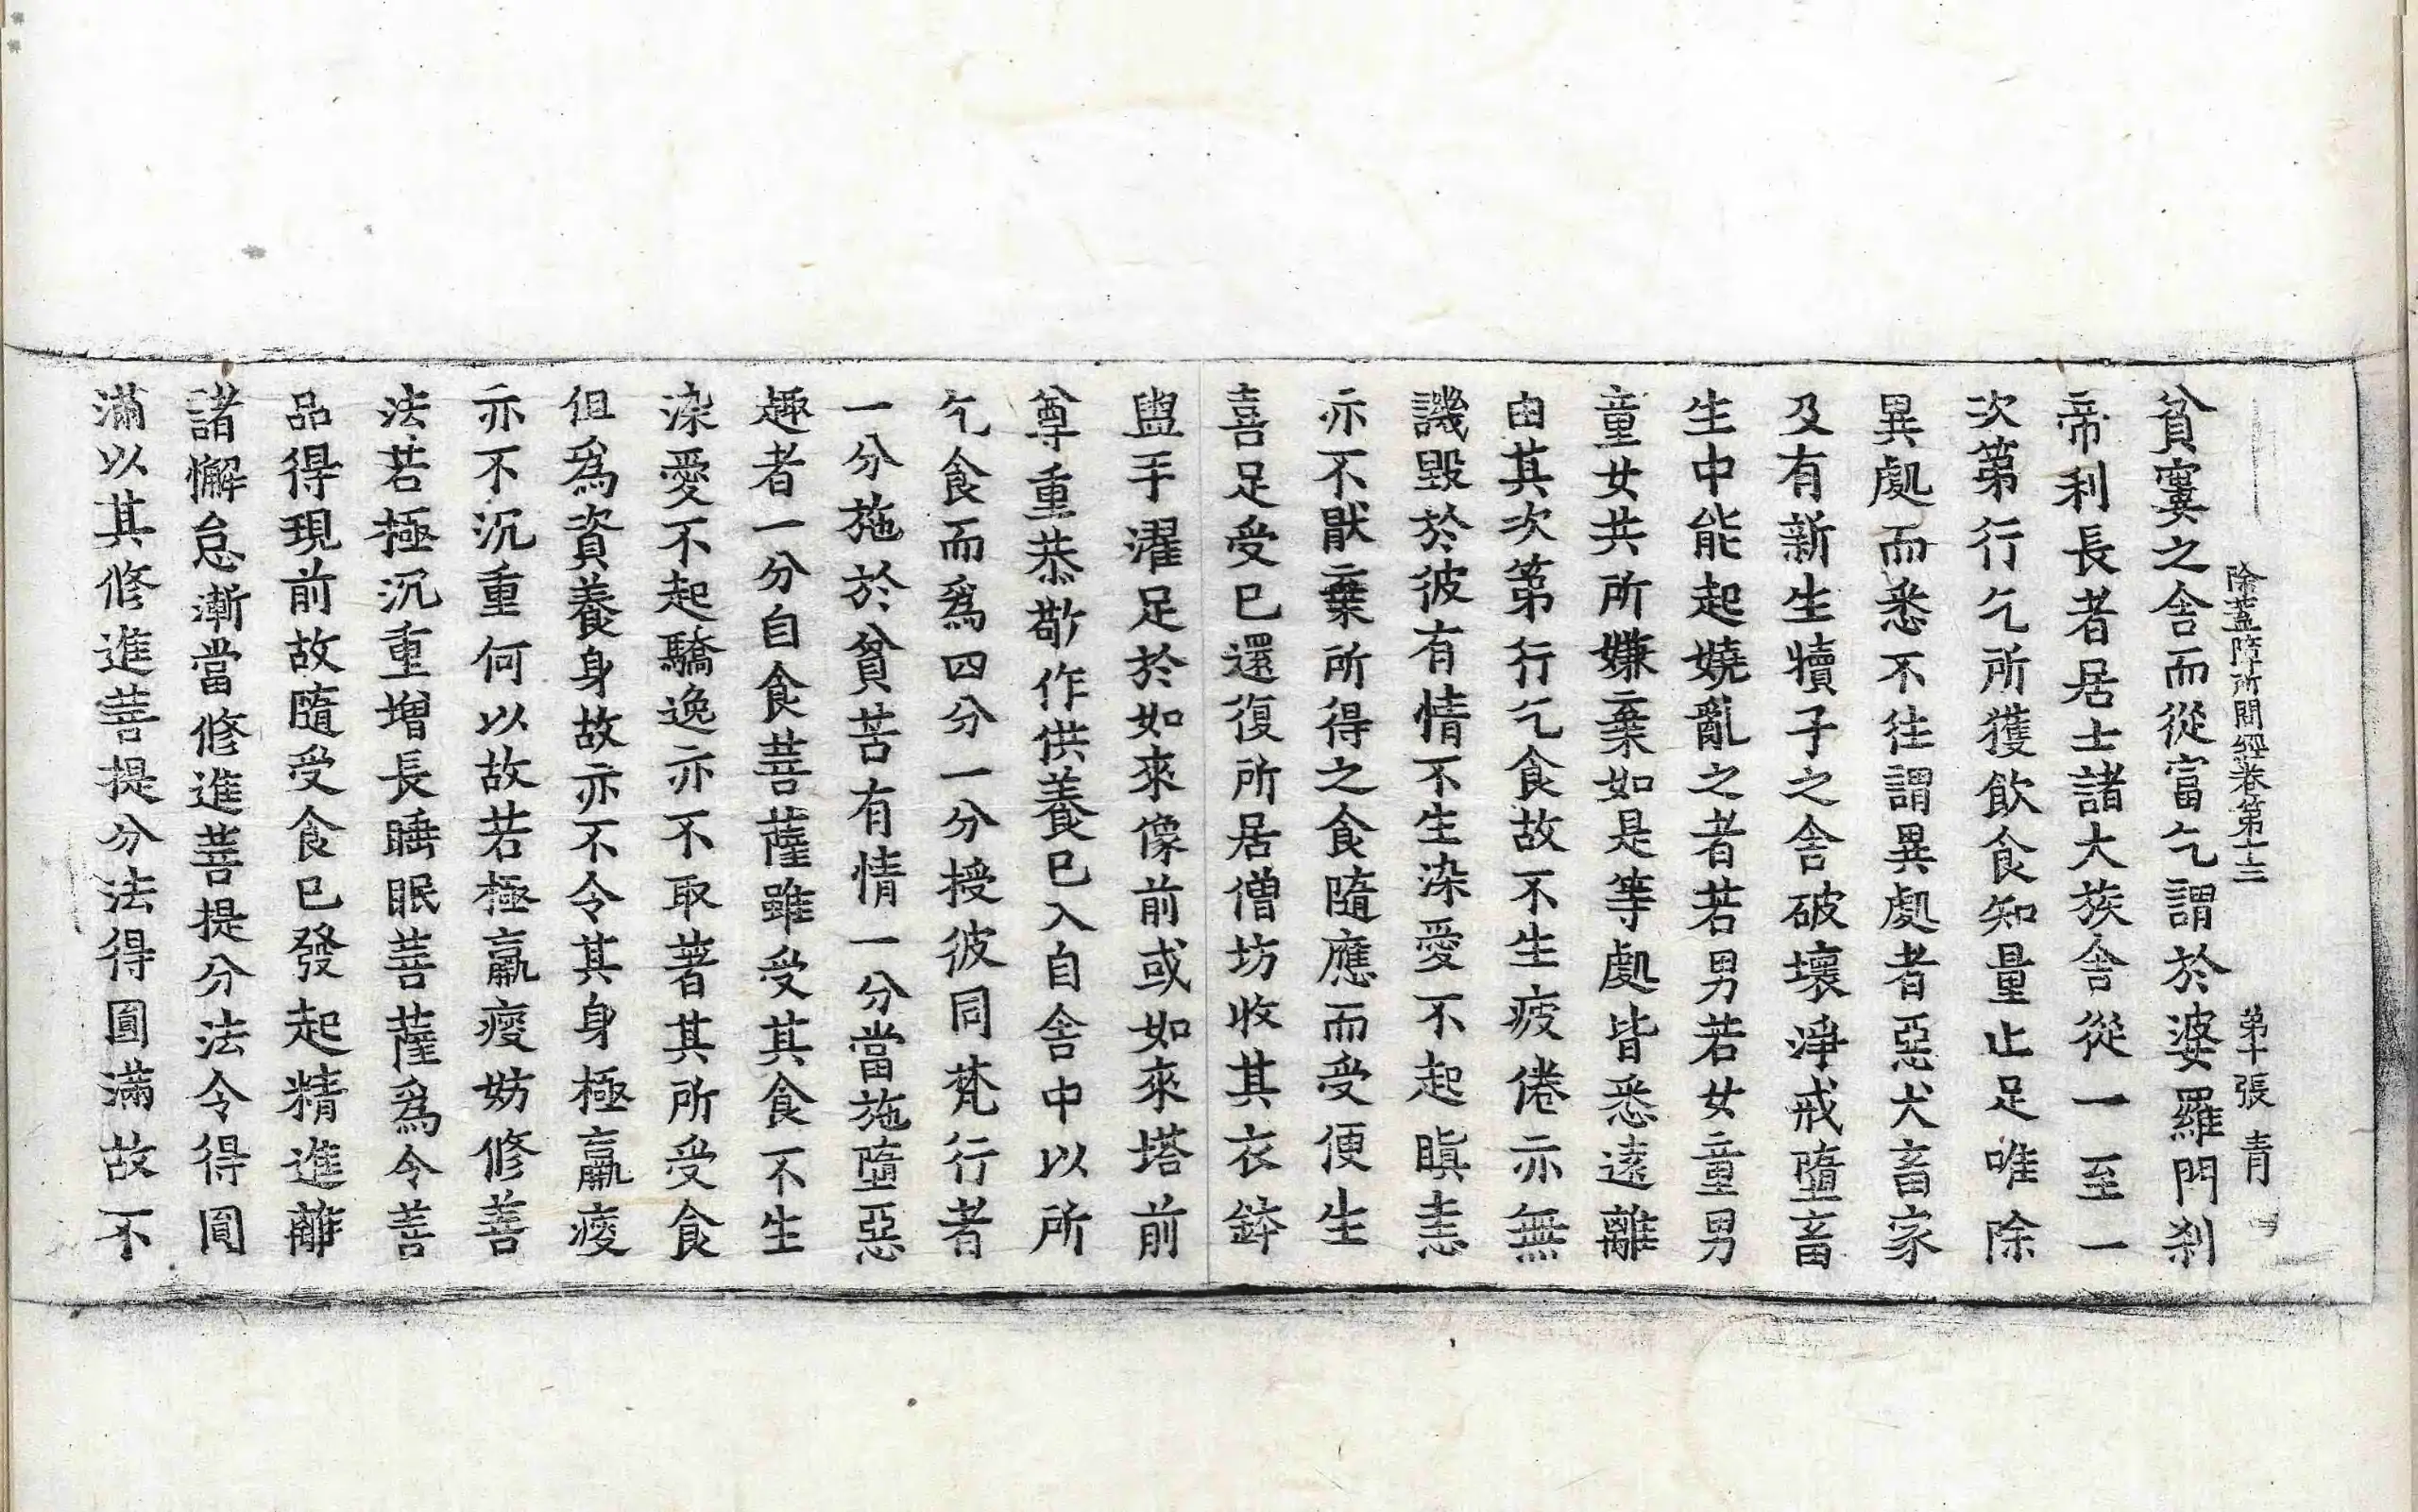 除蓋障所問經卷第十三　第十張　青
貧寠之舍而從富乞謂於婆羅門刹
帝利長者居士諸大族舍從一至一
次第行乞所獲飲食知量止足唯除
異處而悉不往謂異處者惡犬畜家
及有新生犢子之舍破壞淨戒墮畜
生中能起嬈亂之者若男若女童男
童女共所嫌棄如是等處皆悉遠離
由其次第行乞食故不生疲倦亦無
譏毀於彼有情不生染愛不起瞋恚
亦不猒棄所得之食隨應而受便生
喜足受已還復所居僧坊收其衣鉢
盥手濯足於如來像前或如來塔前
尊重恭敬作供養已入自舍中以所
乞食而爲四分一分授彼同梵行者
一分施於貧苦有情一分當施墮惡
趣者一分自食菩薩雖受其食不生
染愛不起驕逸亦不取著其所受食
但爲資養身故亦不令其身極羸瘦
亦不沉重何以故若極羸瘦妨修善
法若極沉重增長睡眠菩薩爲令善
品得現前故隨受食已發起精進離
諸懈怠漸當修進菩提分法令得圓
滿以其修進菩提分法得圓滿故不